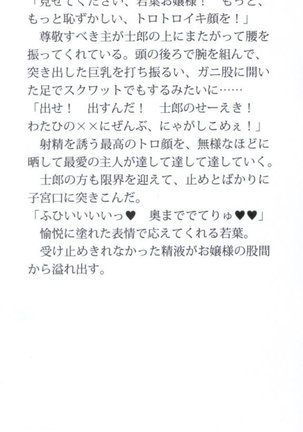 「見せてください、若葉お嬢様！　もっと、
もっと恥ずかしい、トロトロイキ顔を！」
尊敬すべき主が士郎の上にまたがって腰を
振ってくれている。頭の後ろで腕を組んで、
突き出した巨乳を打ち振るい、ガニ股に開い
た足でスクワットでもするみたいに……
「出せ！　出すんだ！　士郎のせーえき！
わたひの××にぜんぶ、にゃがしこめぇ！」
射精を誘う最高のトロ顔を、無様なほどに
晒して最愛の主人が達して達して達していく。
士郎の方も限界を迎えて、止めとばかりに
子宮口に突きこんだ。
「ふひいいいいっ♥　奥まででてりゅ♥♥」
愉悦に塗れた表情で応えてくれる若葉。
受け止めきれなかった精液がお嬢様の股間
から溢れ出す。